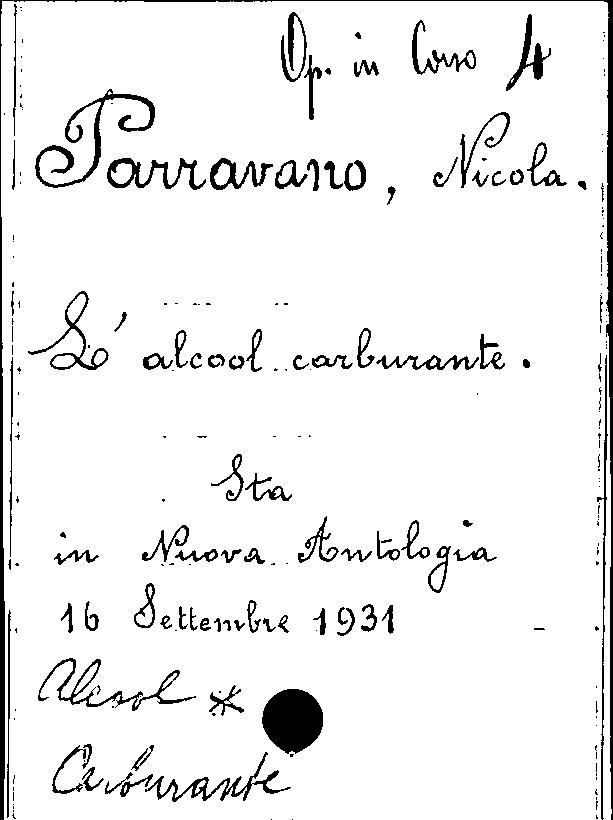 Op. in Corso 4
Parravano, Nicola.
L'alcool carburante.
Sta
in Nuova Antologia
16 Settembre 1931
Alcool *
Carburante